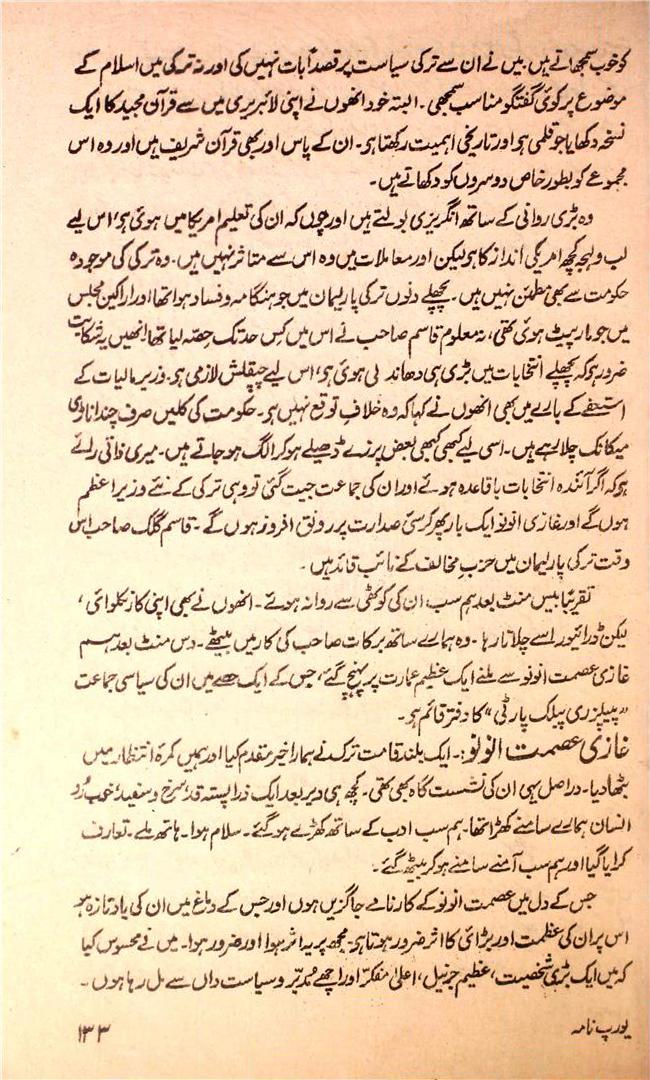 کو خوب سمجھاتے ہیں۔ میں نے ان سے ترکی سیاست پر قصداً بات نہیں کی اور نہ ترکی میں اسلام کے
موضوع پر کوئی گفتگو مناسب سمجھی۔ البتہ خود انھوں نے اپنی لائبریری میں سے قرآن مجید کا ایک
نسخہ دکھایا جو قلمی ہو اور تاریخی اہمیت رکھتا ہو۔ ان کے پاس اور بھی قرآن شریف ہیں اور وہ اس
مجموعے کو بطور خاص دوسروں کو دکھاتے ہیں۔
وہ بڑی روانی کے ساتھ انگریزی بولتے ہیں اور چوں کہ ان کی تعلیم امریکا میں ہوئی ہو، اس لیے
لب و لہجہ کچھ امریکی انداز کا ہو لیکن اور معاملات میں وہ اس سے متاثر نہیں ہیں۔ وہ ترکی کی موجودہ
حکومت سے بھی مطمئن نہیں ہیں۔ پچھلے دنوں ترکی پارلیمان میں جو ہنگامہ و فساد ہوا تھا اور اراکین مجلس
میں جو مار پیٹ ہوئی تھی، نہ معلوم قاسم صاحب نے اس میں کس حد تک حصّہ لیا تھا۔ انھیں یہ شکایت
ضرور ہو کہ پچھلے انتخابات میں بڑی ہی دھاندلی ہوئی ہو، اس لیے چپقلش لازمی ہو۔ وزیر مالیات کے
استعفے کے بارے میں بھی انھوں نے کہا کہ وہ خلافِ توقع نہیں ہو۔ حکومت کی کلیں صرف چند اناڑی
میکانک چلا رہے ہیں۔ اسی لیے کبھی کبھی بعض پرزے ڈھیلے ہو کر الگ ہو جاتے ہیں۔ میری ذاتی رائے
ہو کہ اگر آئندہ انتخابات باقاعدہ ہوئے اور ان کی جماعت جیت گئی تو وہی ترکی کے نئے وزیر اعظم
ہوں گے اور غازی انونو ایک بار پھر کرسیٔ صدارت پر رونق افروز ہوں گے۔ قاسم گلک صاحب اس
وقت ترکی پارلیمان میں حزبِ مخالف کے نائب قائد ہیں۔
تقریباً بیس منٹ بعد ہم سب ان کی کوٹھی سے روانہ ہوئے۔ انھوں نے بھی اپنی کار نکلوائی،
لیکن ڈرائیور اسے چلاتا رہا۔ وہ ہمارے ساتھ برکات صاحب کی کار میں بیٹھے۔ دس منٹ بعد ہم
غازی عصمت انونو سے ملنے ایک عظیم عمارت پر پہنچ گئے، جس کے ایک حصے میں ان کی سیاسی جماعت
"پیپلز ری پبلک پارٹی" کا دفتر قائم ہو۔
غازی عصمت انونو:۔ ایک بلند قامت ترک نے ہمارا خیر مقدم کیا اور ہمیں کمرۂ انتظار میں
بٹھا دیا۔ دراصل یہی ان کی نشست گاہ بھی تھی۔ کچھ ہی دیر بعد ایک ذرا پستہ قد، سرخ و سفید، خوب رُو
انسان ہمارے سامنے کھڑا تھا۔ ہم سب ادب کے ساتھ کھڑے ہو گئے۔ سلام ہوا۔ ہاتھ ملے۔ تعارف
کرایا گیا اور ہم سب آمنے سامنے ہو کر بیٹھ گئے۔
جس کے دل میں عصمت انونو کے کارنامے جاگزیں ہوں اور جس کے دماغ میں ان کی یاد تازہ ہو
اس پر ان کی عظمت اور بڑائی کا اثر ضرور ہوتا ہو۔ مجھ پر یہ اثر ہوا اور ضرور ہوا۔ میں نے محسوس کیا
کہ میں ایک بڑی شخصیت، عظیم جرنیل، اعلیٰ مفکّر اور اچھے مُدبّر و سیاست داں سے مل رہا ہوں۔
یورپ نامہ
۱۳۳